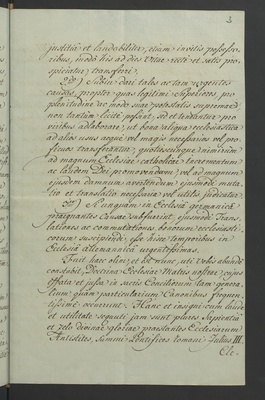 3
justitiâ et laudabiliter, etiam invitis possesso-
ribus, modò his ad dies vitæ rectè et satis pro-
spiciatur, transferri.
2dò) Subin dari tales ac tam urgentes
causas, propter quas legitimi Superiores, pro
plenitudine ac modo suæ potestatis supremæ
non tantùm licitè possint, sed et teneantur pro
viribus adlaborare, ut bona aliqua ecclesiastica
ad alios usus æquè vel magis necessarios vel pro-
ficuos transferantur, quotiescunque nimirum
ad magnum Ecclesiæ catholicæ incrementum
ac laudem Dei promovendam, vel ad magnum
ejusdem damnum avertendum ejusmodi muta-
tio et translatio necessaria vel utilis judicatur.
3tiò) Nunquam in Ecclesiâ germanicâ
prægnantes Causæ subfuerint, ejusmodi Trans-
lationes ac commutationes bonorum ecclesiasti-
corum suscipiendi, esse hisce temporibus in
Ecclesiâ allemannicâ urgentissimas.
Fuit hæc olim, et est nunc, uti vobis abundè
constabit, Doctrina Ecclesiæ Matris nostræ, cujus
effata et jussa in sacris Conciliorum tam genera-
lium quàm particularium Canonibus frequen-
tissimè occurrunt. Hanc et insigni cum laude
et utilitate sequuti jam sunt plures Sapientiâ
et zelo divinæ gloriæ præstantes Ecclesiarum
Antistites, Summi Pontifices Romani Julius III.
Cle-